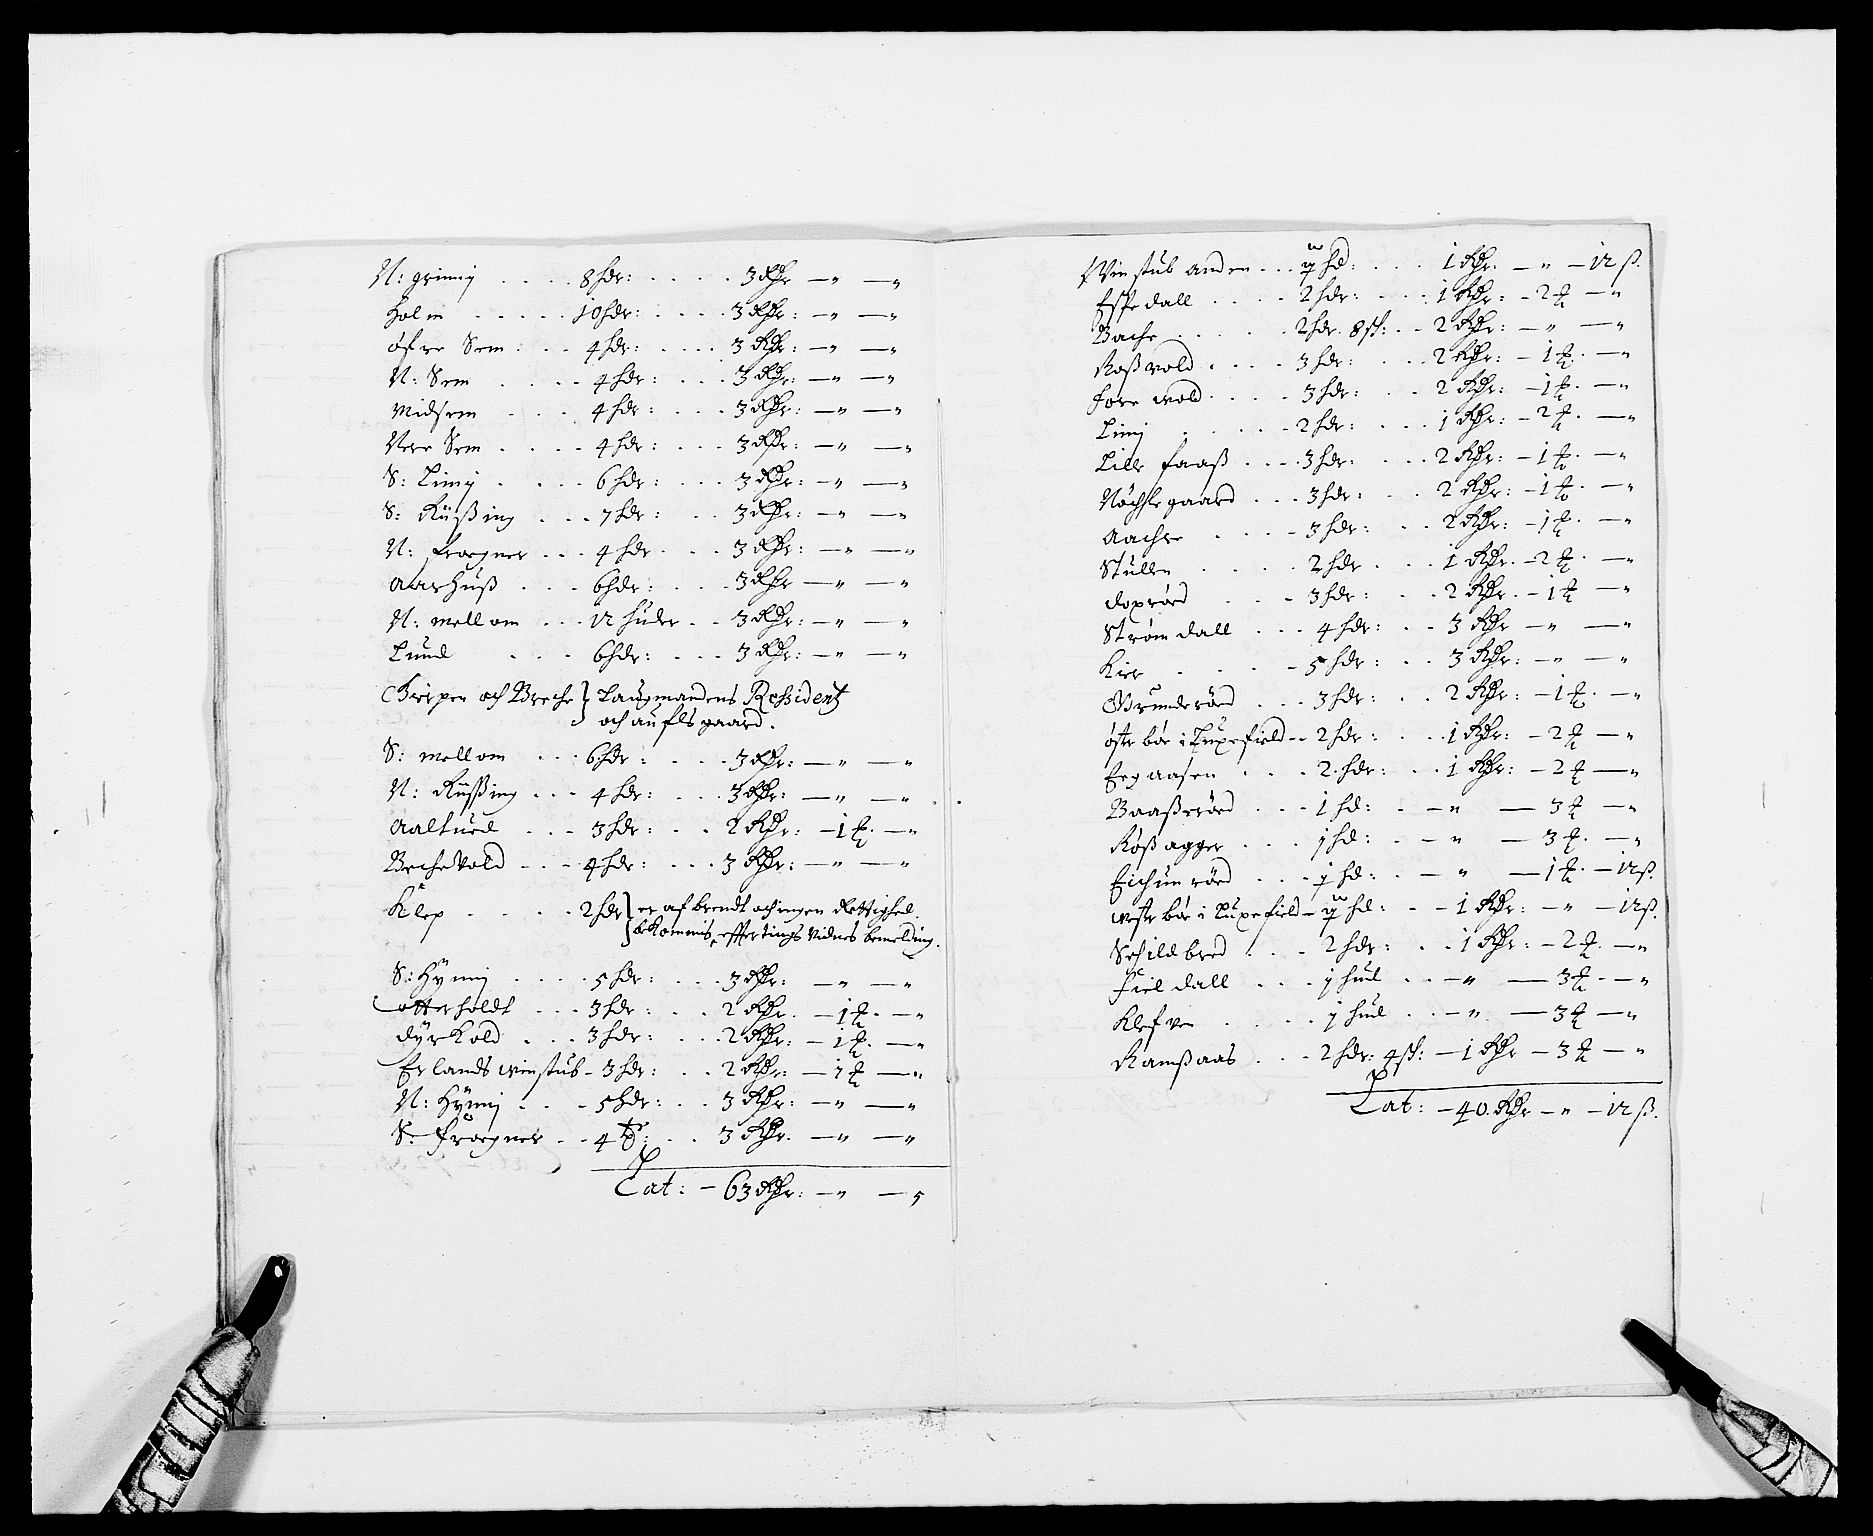 N: grinnj . . . . 8 hdr: . . . . 3 Rdr — " — "
Holm . . . . . 10 hdr: . . . . 3 Rdr: — " — "
öfre Sem . . . 4 hdr: . . . . 3 Rdr: — " — "
N: Sem . . . . 4 hdr: . . . 3 Rdr: — " — "
Midsem . . . 4 hdr: . . . 3 Rdr: — " — "
Nere Sem . . . . 4 hdr: . . . 3 Rdr: — " — "
S: Linnj . . . . 6 hdr: . . . 3 Rdr: — " — "
S: Rüßing . . . 7 hdr: . . 3 Rdr: — " — "
N: frogner . . . 4 hdr . . . 3 Rdr: — " — "
Aarhuß . . . 6 hdr: . . . 3 Rdr — " — "
N: mellom . . . 12 huder . . 3 Rdr: — " — "
Lund . . . 6 hdr: . . . 3 Rdr: — " — "
och Breche } Laugmandens Ressident
och aufls gaard.
S: mellom . . . 6 hdr: . . . 3 Rdr: — " — "
N: Rüßing . . . 4 hdr: . . . 3 Rdr: — " — "
. . . 3 hdr: . . 2 Rdr: — 1 ₰. — "
Brchevold . . . 4 hdr: . . . 3 Rdr: — " — "
Klep . . . . . 2 hdr } er af brendt och ingen Rettighed
bekommis, effter tings vidnes bemelding.
S: Hÿnnj . . . . 5 hdr: . . . 3 Rdr: — " — "
otterholdt . . . 3 hdr: . . 2 Rdr. — 1 ₰. — "
dÿrkold . . . 3 hdr: . . . 2 Rdr: — 1 ₰. — "
Erlands winstub - 3 hdr: . . 2 Rdr: — 1 ₰ — "
N: Hÿnnj . . . 5 hdr: . . 3 Rdr: — " — "
S: frogner . . 4 . . 3 Rdr. — " — "
Lat: — 63 Rdr: — " — "
Winstub anden . . . hd: . . . 1 Rdr. — " — 12 ß.
Espedall . . . . 2 hdr: . . . 1 Rdr: - 2 ₰ — "
Bache . . . . . 2 hdr. 8 sk: . . 2 Rdr: — " — "
Roßvold . . . . 3 hdr: . . . 2 Rdr: — 1 ₰. — "
fore vold . . . . 3 hdr: . . 2 Rdr: — 1 ₰. — "
Linnj . . . . . 2 hdr: . . . 1 Rdr: - 2 ₰. — "
Lille faaß . . . 3 hdr: . . . 2 Rdr: — 1 ₰. — "
Nöchlegaard . . . 3 hdr: . . 2 Rdr: — 1 ₰. — "
Aachre . . . . 3 hdr: . . 2 Rdr: — 1 ₰. — "
Stullen . . . . . 2 hdr . . . 1 Rdr. — 2 ₰. — "
doprörd . . . 3 hdr: . . 2 Rdr. — 1 ₰ — "
Strömdall . . . 4 hdr: . . 3 Rdr — " — "
Kier . . . . - 5 hdr: . . 3 Rdr: — " — "
Grunderörd . . . 3 hdr: . . 2 Rdr: — 1 ₰. — "
öste böe i Luxefield - 2 hdr: . . . 1 Rdr: — 2 ₰ — "
Egaasen . . . 2 hdr: . . 1 Rdr: — 2 ₰ — "
Baaßerörd . . . 1 hd: . — " — 3 ₰ — "
Roßagger . . . 1 hd: . — " — 3 ₰. — "
Eichunrörd . . . hd: . — " — 1 ₰. — 12 ß.
weste böe i Luxefield - hd: . — 1 Rdr: — " — 12 ß.
Schildbred . . . 2 hdr: . . 1 Rdr: — 2 ₰. — "
Fieldall . . . 1 hud . . — " — 3 ₰. — "
Klefven . . . . 1 hud . . — " — 3 ₰ — "
Ramßaas . . . 2 hdr: 4 sk: — 1 Rdr — 3 ₰ — "
Lat: — 40 Rdr — " — 12 ß.